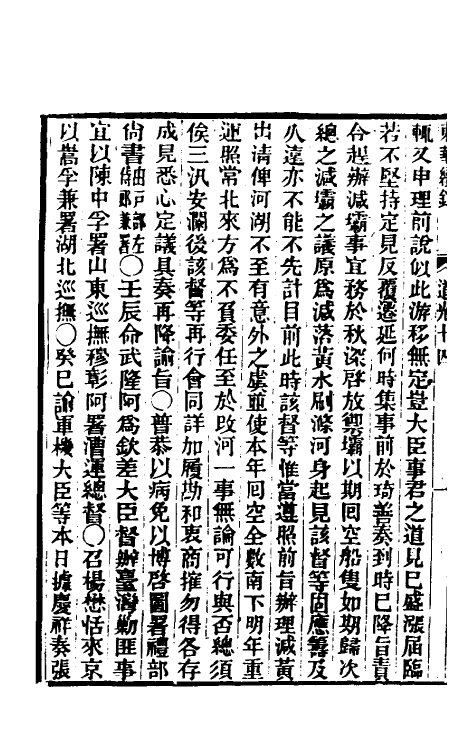 輒又申理前說似此游移無定豈大臣事君之道見已盛漲屆臨
若不堅持定見反覆遷延何時集事前於琦善奏到時已降旨責
令趕辦減壩事宜務於秋深啓放禦壩以期回空船隻如期歸次
總之減壩之議原為減落黃水刷滌河身起見該督等固應籌及
久遠亦不能不先計目前此時該督等惟當遵照前旨辦理減黃
出清俾河湖不至有意外之虞並使本年回空全數南下明年重
運照常北來方為不負委任至於改河一事無論可行與否總須
俟三汛安瀾後該督等再行會同詳加履勘和衷商搉勿得各存
成見悉心定議具奏再降諭旨○普恭以病免以博啓圖署禮部
尚書由戶部左侍郎兼署○壬辰命武隆阿為欽差大臣督辦臺灣勦匪事
宜以陳中孚署山東巡撫穆彰阿署漕運總督○召楊懋恬來京
以嵩孚兼署湖北巡撫○癸巳諭軍機大臣等本日據慶祥奏張